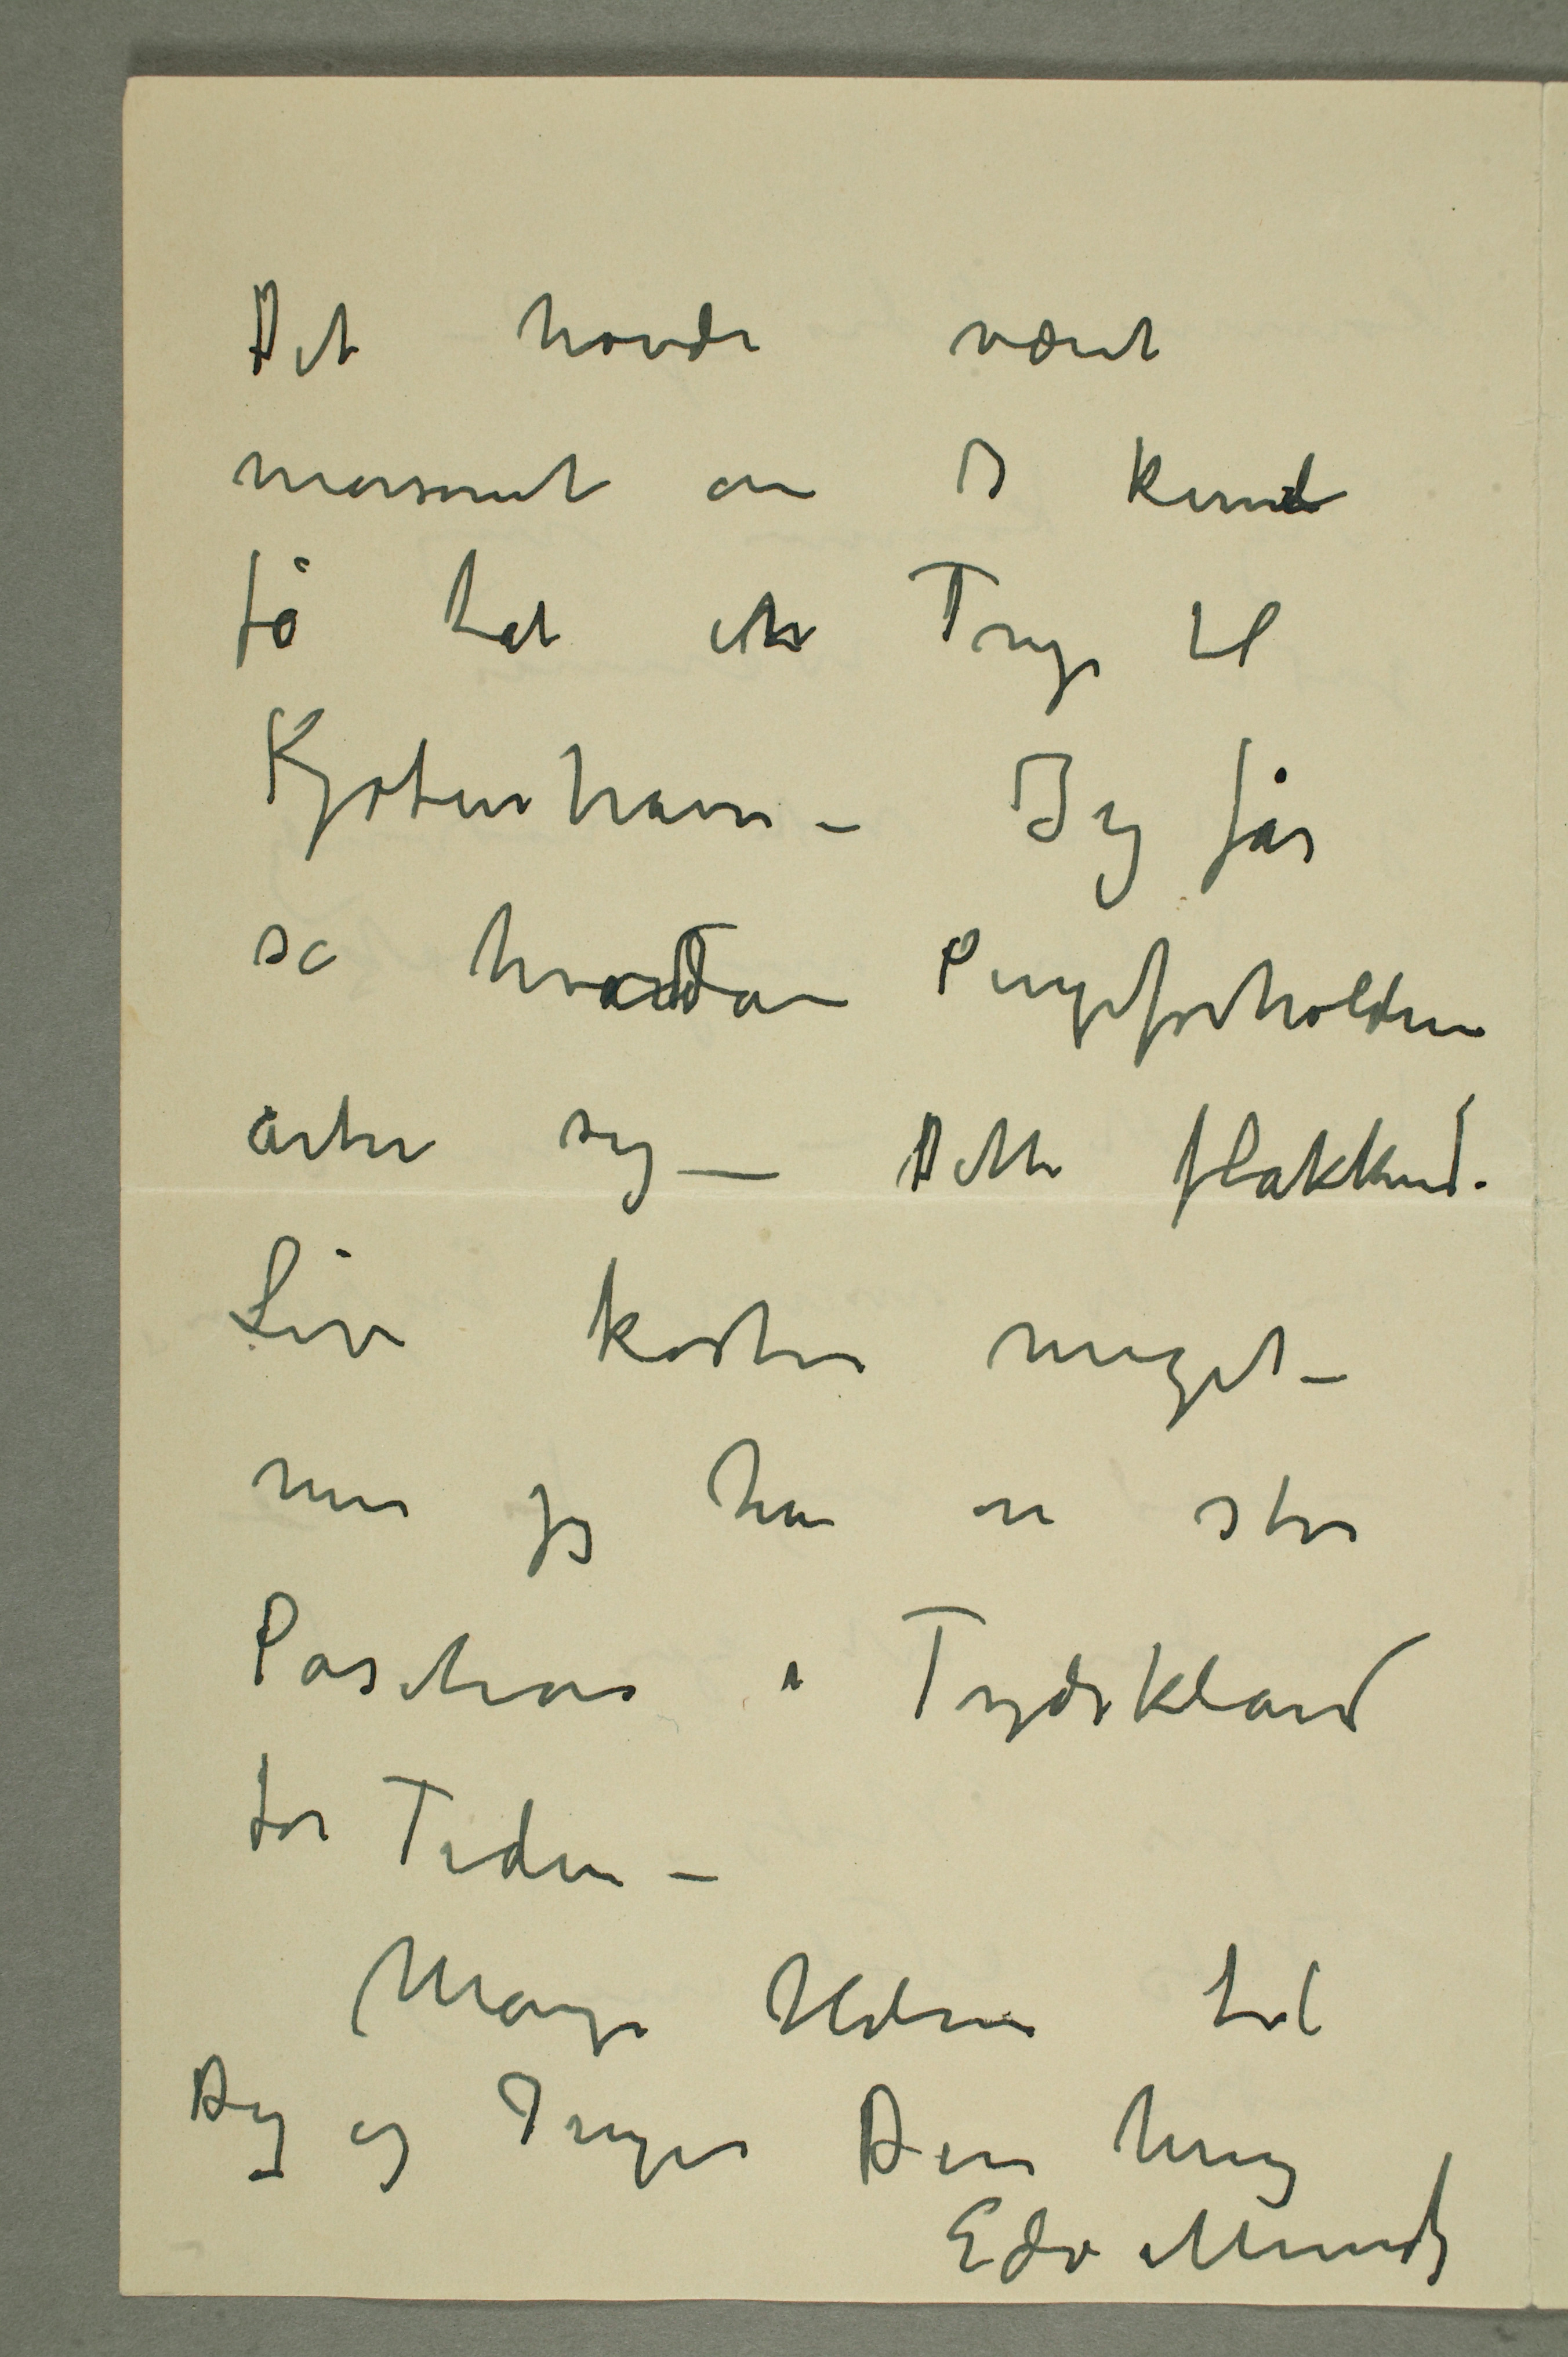 Det havde været
morsomt om I kunde
få tat en Tur til
Kjøbenhavn – Jeg får
se hvordan Pengeforholdene
arter sig – Dette flakkende
Liv koster meget –
men jeg har en stor
Position i Tydskland
for Tiden –
Mange Hilsner til
Dig og Inger Din heng
Edv Munch